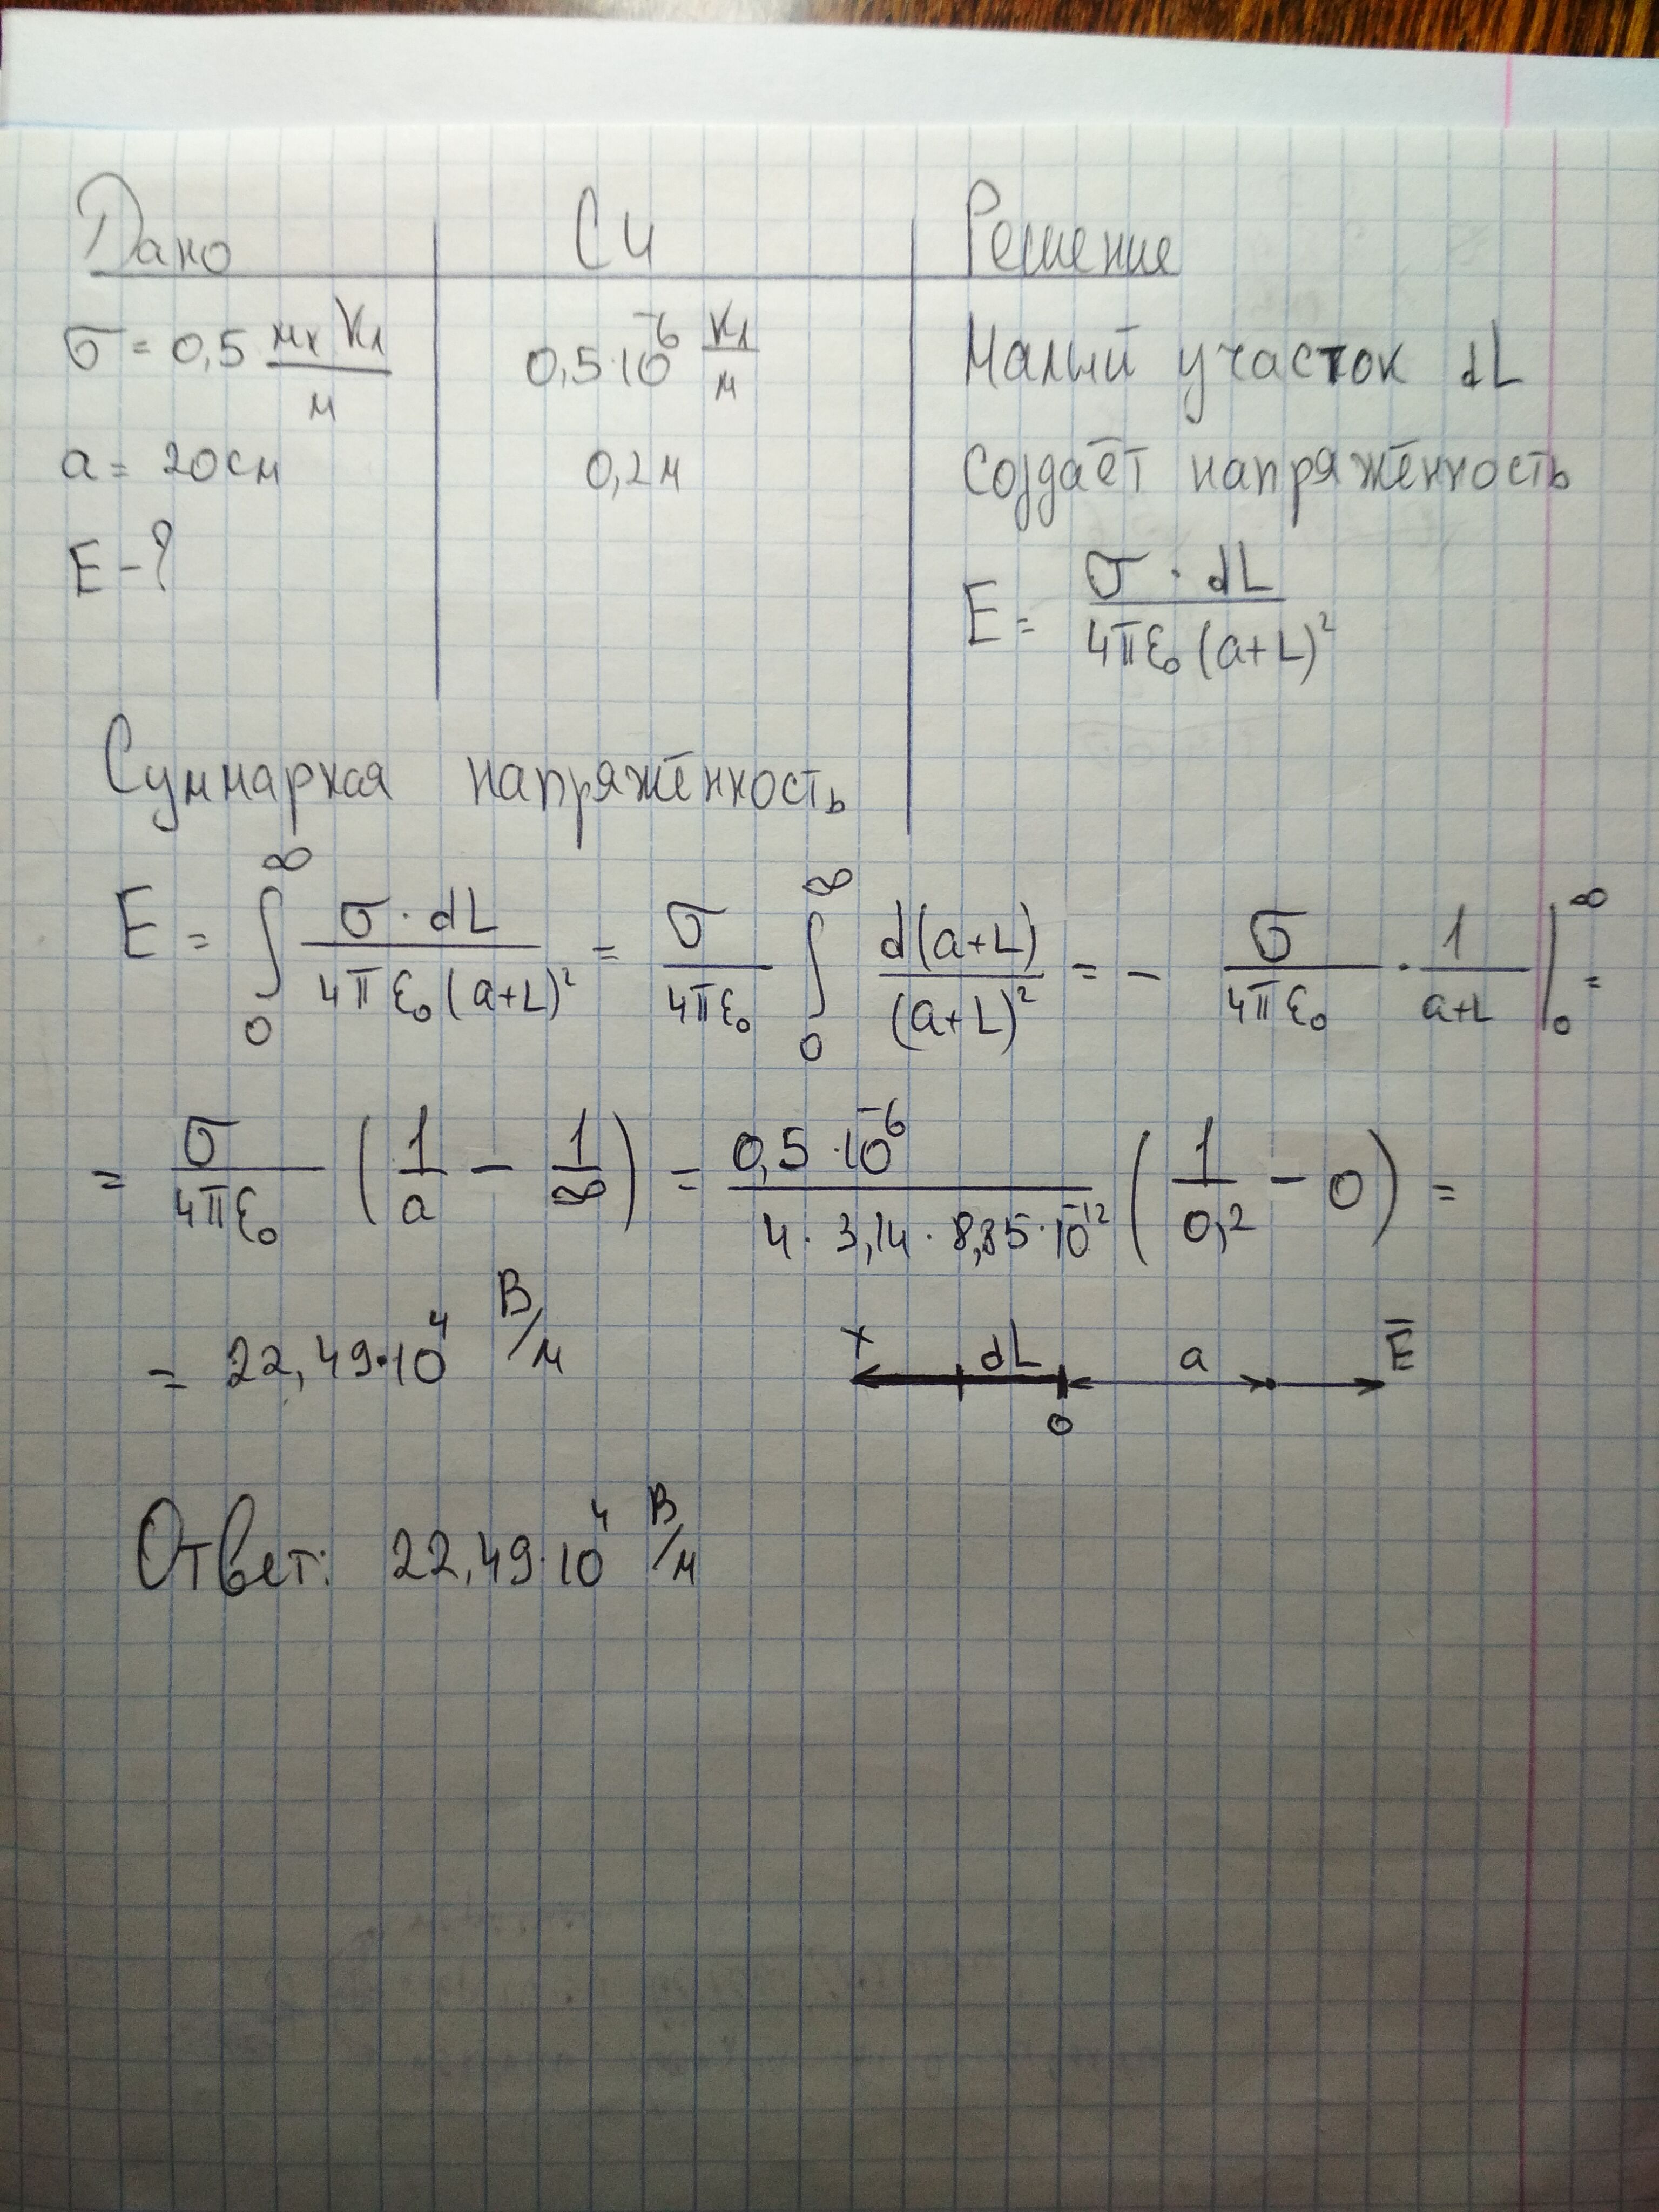 Дано СИ Решение
σ = 0,5 мкКл/м 0,5·10⁻⁶ Кл/м Малый участок dL
a = 20см 0,2м создаёт напряжённость
E - ? E = σ · dL / 4πε₀(a+L)²
Суммарная напряжённость
E = ∫₀^∞ σ·dL / 4πε₀(a+L)² = σ / 4πε₀ ∫₀^∞ d(a+L) / (a+L)² = - σ / 4πε₀ · 1 / a+L |₀^∞ =
= σ / 4πε₀ (1/a - 1/∞) = 0,5·10⁻⁶ / 4·3,14·8,85·10⁻¹² (1/0,2 - 0) =
= 22,49·10⁴ В/м
x dL a E̅
0
Ответ: 22,49·10⁴ В/м